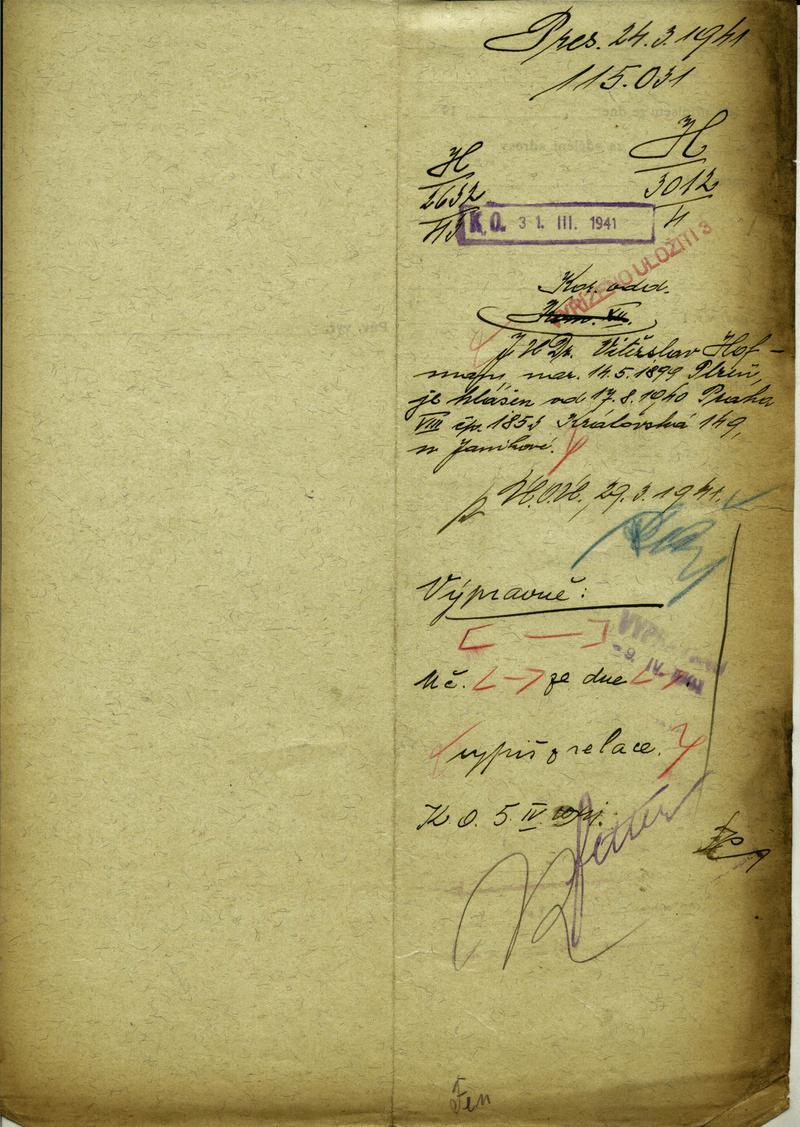 Pres. 24.3.1941
115.031
H
2632
43
H
3012
4
K.O. 31. III. 1941
VYŘÍZENO ULOŽITI 3
Kor. odd.
Kom. XII.
JUDr. Vítězslav Hof-
mann, nar. 14.5.1899 Plzeň,
je hlášen od 17.8.1940 Praha
VIII čp. 1853 Královská 149,
u Janíkové.
H.O.H., 29.3.1941.
Výpravně:
[ — ]
Uč. ze dne
výpis z relace.
K.O. 5. IV
Fen